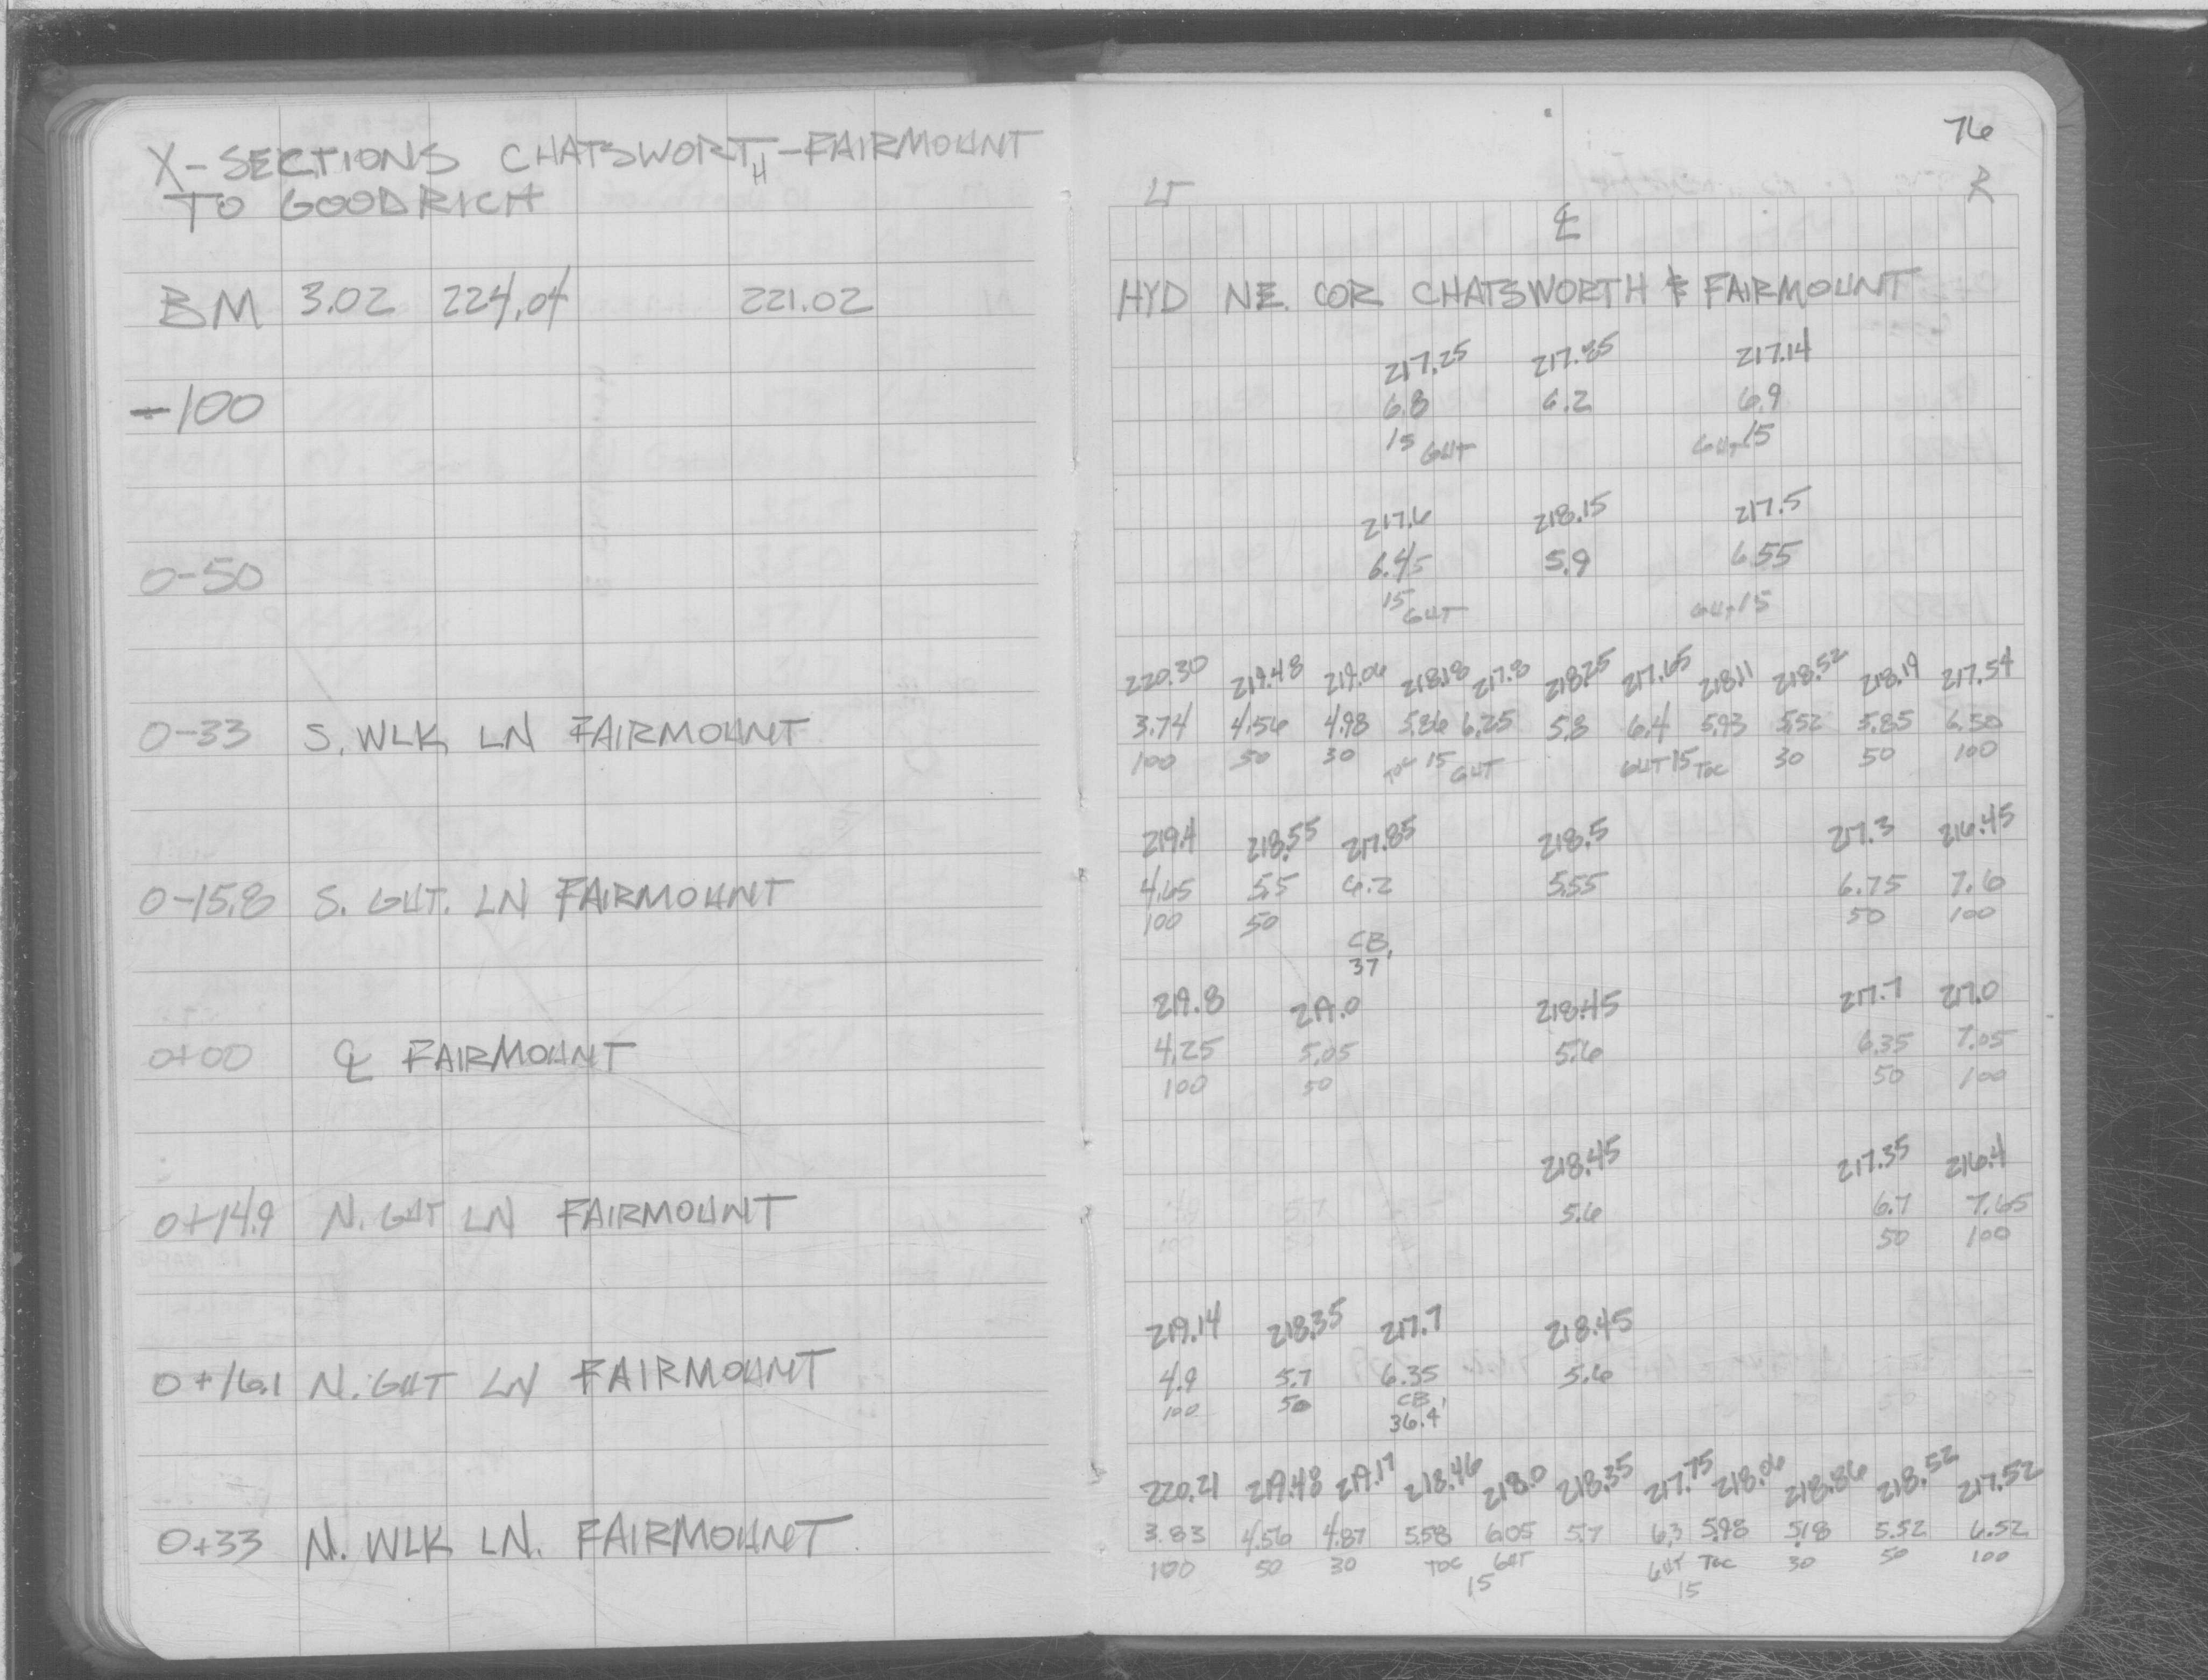 X-SECTIONS CHATSWORTH-FAIRMOUNT
TO GOODRICH
BM 3.02 224.04 221.02
-100
0-50
0-33 S. WLK LN FAIRMOUNT
0-15.8 S. GUT. LN FAIRMOUNT
0+00 ℄ FAIRMOUNT
0+14.9 N. GUT LN FAIRMOUNT
0+16.1 N. GUT LN FAIRMOUNT
0+33 N. WLK LN. FAIRMOUNT
76
LT R
℄
HYD NE. COR CHATSWORTH & FAIRMOUNT
217.25 217.85 217.14
6.8 6.2 6.9
15 GUT GUT 15
217.6 218.15 217.5
6.45 5.9 6.55
15 GUT GUT 15
220.30 219.48 219.06 218.18 217.8 218.25 217.65 218.11 218.52 218.19 217.54
3.74 4.56 4.98 5.86 6.25 5.8 6.4 5.93 5.52 5.85 6.50
100 50 30 TOC 15 GUT GUT 15 TOC 30 50 100
219.4 218.55 217.85 218.5 217.3 216.45
4.65 5.5 6.2 5.55 6.75 7.6
100 50 50 100
CB
37'
219.8 219.0 218.45 217.7 217.0
4.25 5.05 5.6 6.35 7.05
100 50 50 100
218.45 217.35 216.4
5.6 6.7 7.65
50 100
219.14 218.35 217.7 218.45
4.9 5.7 6.35 5.6
100 50 CB
36.4'
220.21 219.48 219.17 218.46 218.0 218.35 217.75 218.06 218.86 218.52 217.52
3.83 4.56 4.87 5.58 6.05 5.7 6.3 5.98 5.18 5.52 6.52
100 50 30 TOC GUT GUT TOC 30 50 100
15 15